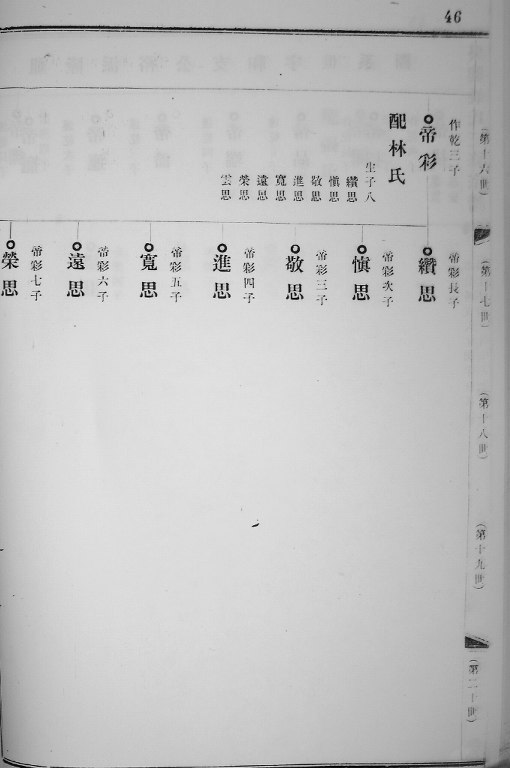 46
(第十六世)
作乾三子
帝彩
配林氏
生子八
纘思
慎思
敬思
進思
寬思
遠思
榮思
雲思
(第十七世)
帝彩長子
纘思
帝彩次子
慎思
帝彩三子
敬思
帝彩四子
進思
帝彩五子
寬思
帝彩六子
遠思
帝彩七子
榮思
(第十八世)
(第十九世)
(第二十世)